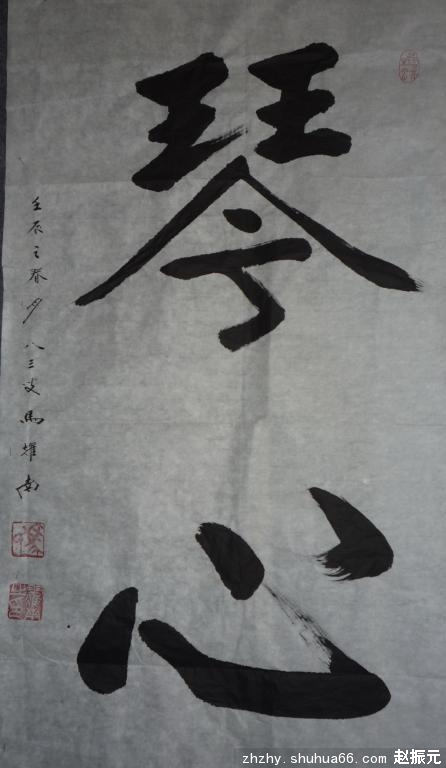 琴心
壬辰之春夕八三叟馬耀南
zhzhy.shuhua66.com 赵振元